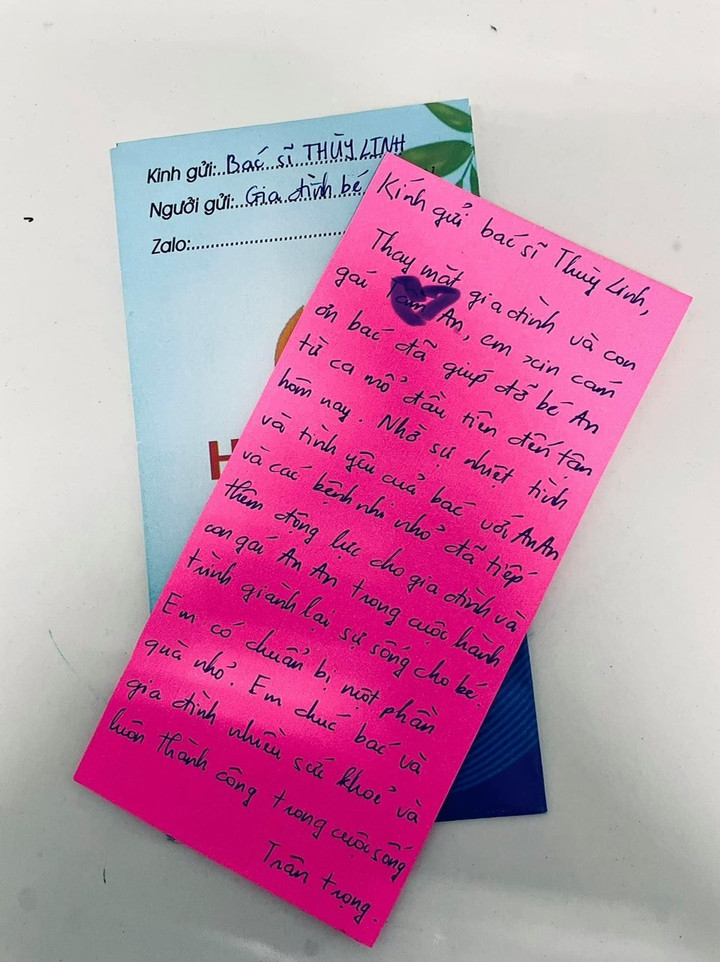 Kính gửi: Bác sĩ THÙY LINH
Người gửi: Gia đình bé
Zalo:
H
Kính gửi bác sĩ Thùy Linh,
Thay mặt gia đình và con
gái Tâm An, em xin cám
ơn bác đã giúp đỡ bé An
từ ca mổ đầu tiên đến tận
hôm nay. Nhờ sự nhiệt tình
và tình yêu của bác với An An
và các bệnh nhi nhỏ đã tiếp
thêm động lực cho gia đình và
con gái An An trong cuộc hành
trình giành lại sự sống cho bé.
Em có chuẩn bị một phần
quà nhỏ. Em chúc bác và
gia đình nhiều sức khoẻ và
luôn thành công trong cuộc sống
Trân trọng.